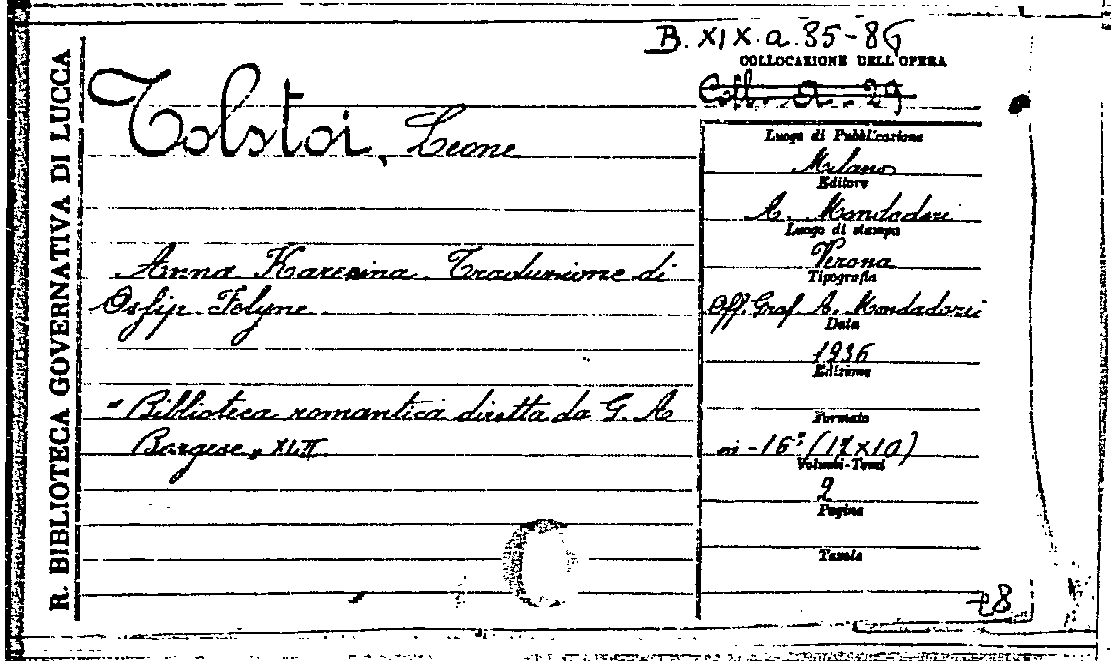 R. BIBLIOTECA GOVERNATIVA DI LUCCA
B. XIX.a.35-86
COLLOCAZIONE DELL'OPERA
Coll. a. 29
Tolstoi, Leone
Anna Karenina. Traduzione di
Ossip Felyne.
"Biblioteca romantica diretta da G. A
Borgese, XLII
Luogo di Pubblicazione
Milano
Editore
A. Mondadori
Luogo di stampa
Verona
Tipografia
Off. Graf. A. Mondadori
Data
1936
Edizione
Formato
in-16° (17x10)
Volumi-Tomi
2
Pagine
Tavole